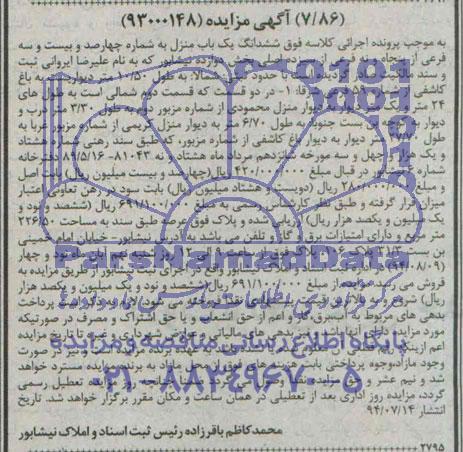 (۷/۸۶) آگهی مزایده (۹۳۰۰۰۱۴۸)
به موجب پرونده اجرائی کلاسه فوق ششدانگ یک باب منزل به شماره چهارصد و بیست و سه
فرعی از پنجاه و سه فرعی از اصلی بخش دوازده نیشابور که به نام علیرضا ایروانی ثبت
و سند مالکیت گردیده است با حدود شمالا: به طول ۱۰/۵۰ متر دیواریست به باغ
کاشفی از شماره شرقا: ۱- در دو قسمت که قسمت دوم شمالی است به طول های
۲۴ متر دیوار منزل محمودی از شماره مزبور به طول ۳/۳۰ متر درب و
دیوار به کوچه بن بست جنوبا: به طول ۶/۷۰ متر به دیوار منزل کریمی از شماره مزبور غربا به
طول متر دیوار به دیوار باغ کاشفی از شماره مزبور، که طبق سند رهنی شماره هشتاد
و یک هزار و چهل و سه مورخه شانزدهم مرداد ماه هشتاد و نه ۸۱۰۴۳-۸۹/۵/۱۶ دفترخانه
شماره نیشابور در قبال مبلغ ۴۲۰/۰۰۰/۰۰۰ ریال (چهارصد و بیست میلیون ریال) بابت اصل
و مبلغ ۲۸۰/۰۰۰/۰۰۰ ریال (دویست و هشتاد میلیون ریال) بابت سود در رهن تعاونی اعتبار
میزان قرار گرفته و طبق نظر کارشناس رسمی به مبلغ ۶۹۱/۱۰۰/۰۰۰ ریال (ششصد و نود و
یک میلیون و یکصد هزار ریال) ارزیابی شده و پلاک فوق عرصه طبق سند به مساحت ۲۳۶/۵۰
متر مربع و دارای امتیازات برق و گاز و تلفن می باشد به آدرس نیشابور- خیابان امام خمینی
بن بست ۳۱/۳ پلاک نود و چهار
(۹۴/۰۸/۰۹) در اداره ثبت اسناد و املاک نیشابور واقع در اجرای ثبت نیشابور از طریق مزایده به
فروش می رسد. مزایده از مبلغ ۶۹۱/۱۰۰/۰۰۰ ریال (ششصد و نود و یک میلیون و یکصد هزار
ریال) شروع و به بالاترین قیمت پیشنهادی نقدا فروخته می شود. لازم به ذکر است پرداخت
بدهی های مربوط به آب، برق، گاز و اعم از حق انشعاب و یا حق اشتراک و مصرف در صورتیکه
مورد مزایده دارای آنها باشد و نیز بدهی های مالیاتی و عوارض شهرداری و غیره تا تاریخ مزایده
اعم از اینکه رقم قطعی آن معلوم شده یا نشده باشد به عهده برنده مزایده است و نیز در صورت
وجود مازاد وجوه پرداختی بابت هزینه های فوق از محل مازاد به برنده مزایده مسترد خواهد
شد و نیم عشر و حق مزایده نقدا وصول می گردد. روز مزایده تعطیل رسمی
گردد، مزایده روز اداری بعد از تعطیلی در همان ساعت و مکان مقرر برگزار خواهد شد. تاریخ
انتشار ۹۴/۰۷/۱۴
محمدکاظم باقرزاده رئیس ثبت اسناد و املاک نیشابور
۲۷۹۵
ParsNamadData
پایگاه اطلاع رسانی مناقصه و مزایده
۰۲۱-۸۸۳۴۹۶۷۰-۵